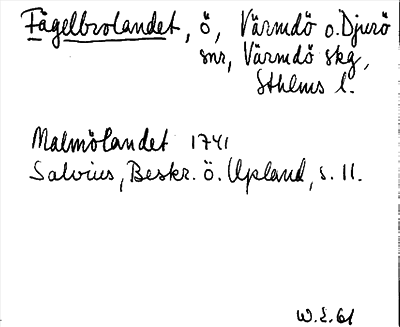 Fågelbrolandet, ö, Värmdö o. Djurö
snr, Värmdö skg,
Sthlms l.
Malmölandet 1741
Salvius, Beskr. ö. Upland, s. 11.
W.E. 61